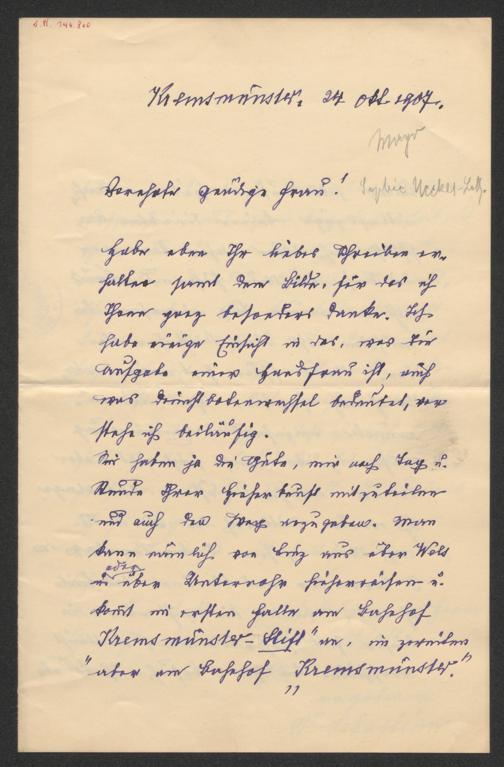 Kremsmünster, 24 Okt. 1907.
Mayr
Verehrte gnädige Frau!
Habe eben Ihr liebes Schreiben er-
halten samt dem Bilde, für das ich
Ihnen ganz besonders danke. Ich
habe einige Einsicht in das, was die
Aufgabe einer Hausfrau ist, auch
was Dienstbotenwechsel bedeutet, ver
stehe ich beiläufig.
Sie haben ja die Güte, mir noch Tag u.
Stunde Ihrer Hieherkunft mitzuteilen
und auch den Weg anzugeben. Man
kann nämlich von Linz aus über Wels
oder
über Unterrohr hieherreisen u.
kommt im ersten Falle am Bahnhof
Kremsmünster-Stift" an, im zweiten
"aber am Bahnhof "Kremsmünster."